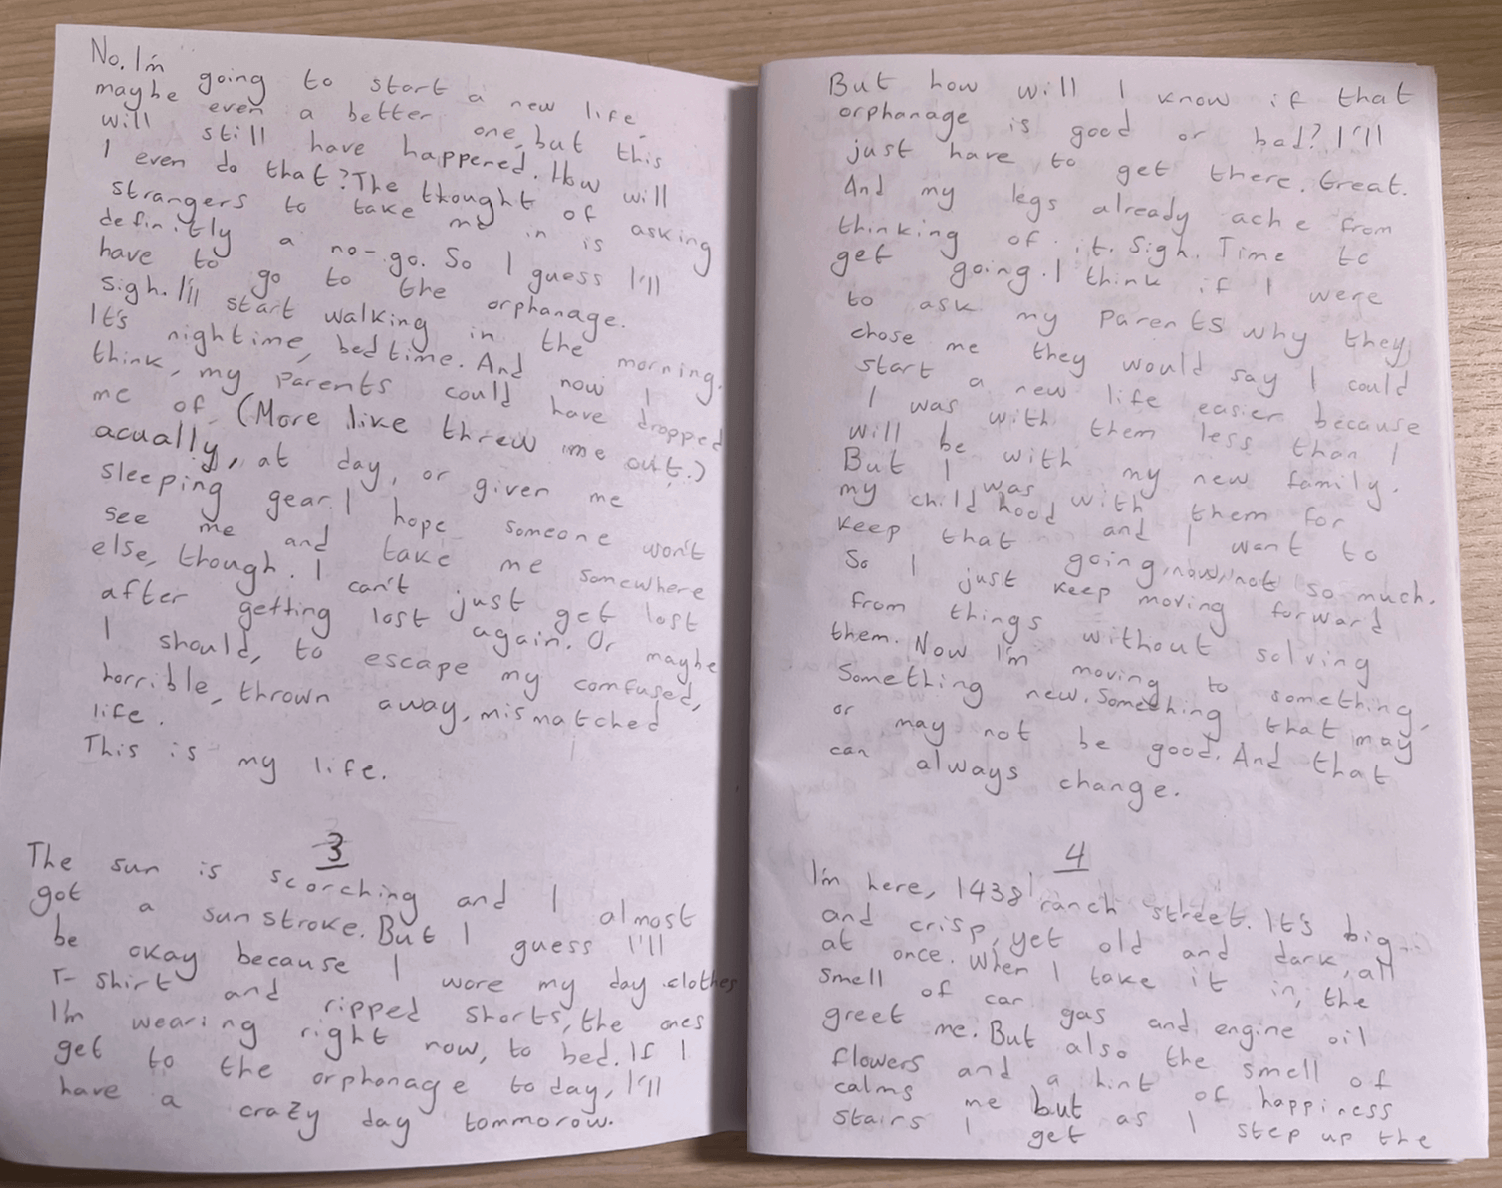 No. I'm going to start a new life,
maybe even a better one, but this
will still have happered. How will
I even do that? The thought of asking
strangers to take me in is
definitly a no-go. So I guess I'll
have to go to the orphanage.
Sigh. I'll start walking in the morning.
It's nightime, bedtime. And now I
think, my parents could have dropped
me of (More like threw me out.)
acually, at day, or given me
sleeping gear. I hope someone won't
see me and take me somewhere
else, though. I can't just get lost
after getting lost again. Or maybe
I should, to escape my comfused,
horrible, thrown away, mismatched
life.
This is my life.
3
The sun is scorching and I almost
got a sunstroke. But I guess I'll
be okay because I wore my day clothes
T-shirt and ripped shorts, the ones
I'm wearing right now, to bed. If I
get to the orphonage today, I'll
have a crazy day tommorow.
But how will I know if that
orphanage is good or bad? I'll
just have to get there. Great.
And my legs already ache from
thinking of it. Sigh. Time to
get going. I think if I were
to ask my parents why they
chose me they would say I could
start a new life easier because
I was with them less than I
will be with my new family.
But I was with them for
my childhood and I want to
keep that going, now, not so much.
So I just keep moving forward
from things without solving
them. Now I'm moving to something,
Something new. Something that may
or may not be good. And that
can always change.
4
I'm here, 1438 ranch street. It's big
and crisp, yet old and dark, all
at once. When I take it in, the
smell of car gas and engine oil
greet me. But also the smell of
flowers and a hint of happiness
calms me but as I step up the
stairs I get